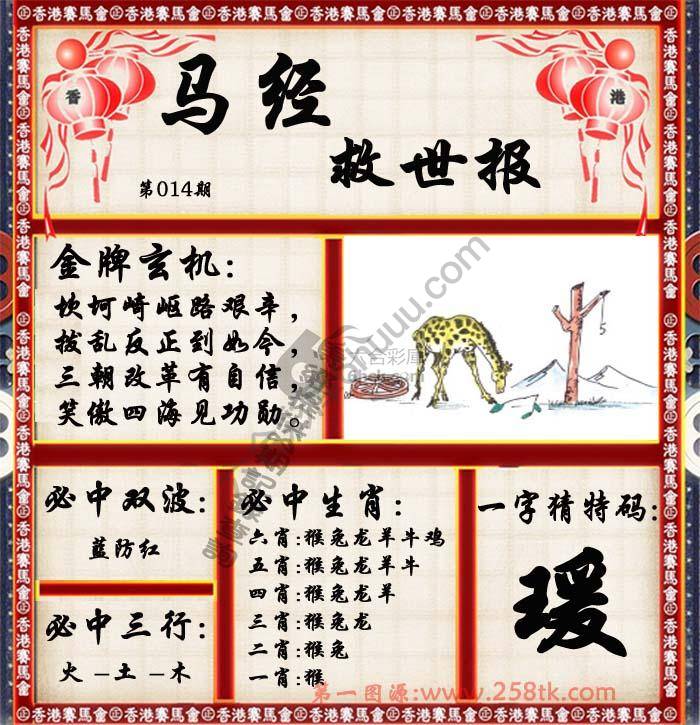 香 港
马经
救世报
第014期
金牌玄机:
坎坷崎岖路艰辛，
拨乱反正到如今，
三朝改革有自信，
笑傲四海见功勋。
5
必中双波:
蓝防红
必中三行:
火-土-木
必中生肖:
六肖:猴兔龙羊牛鸡
五肖:猴兔龙羊牛
四肖:猴兔龙羊
三肖:猴兔龙
二肖:猴兔
一肖:猴
一字猜特码:
瑗
第一图源:www.258tk.com
香港賽馬會